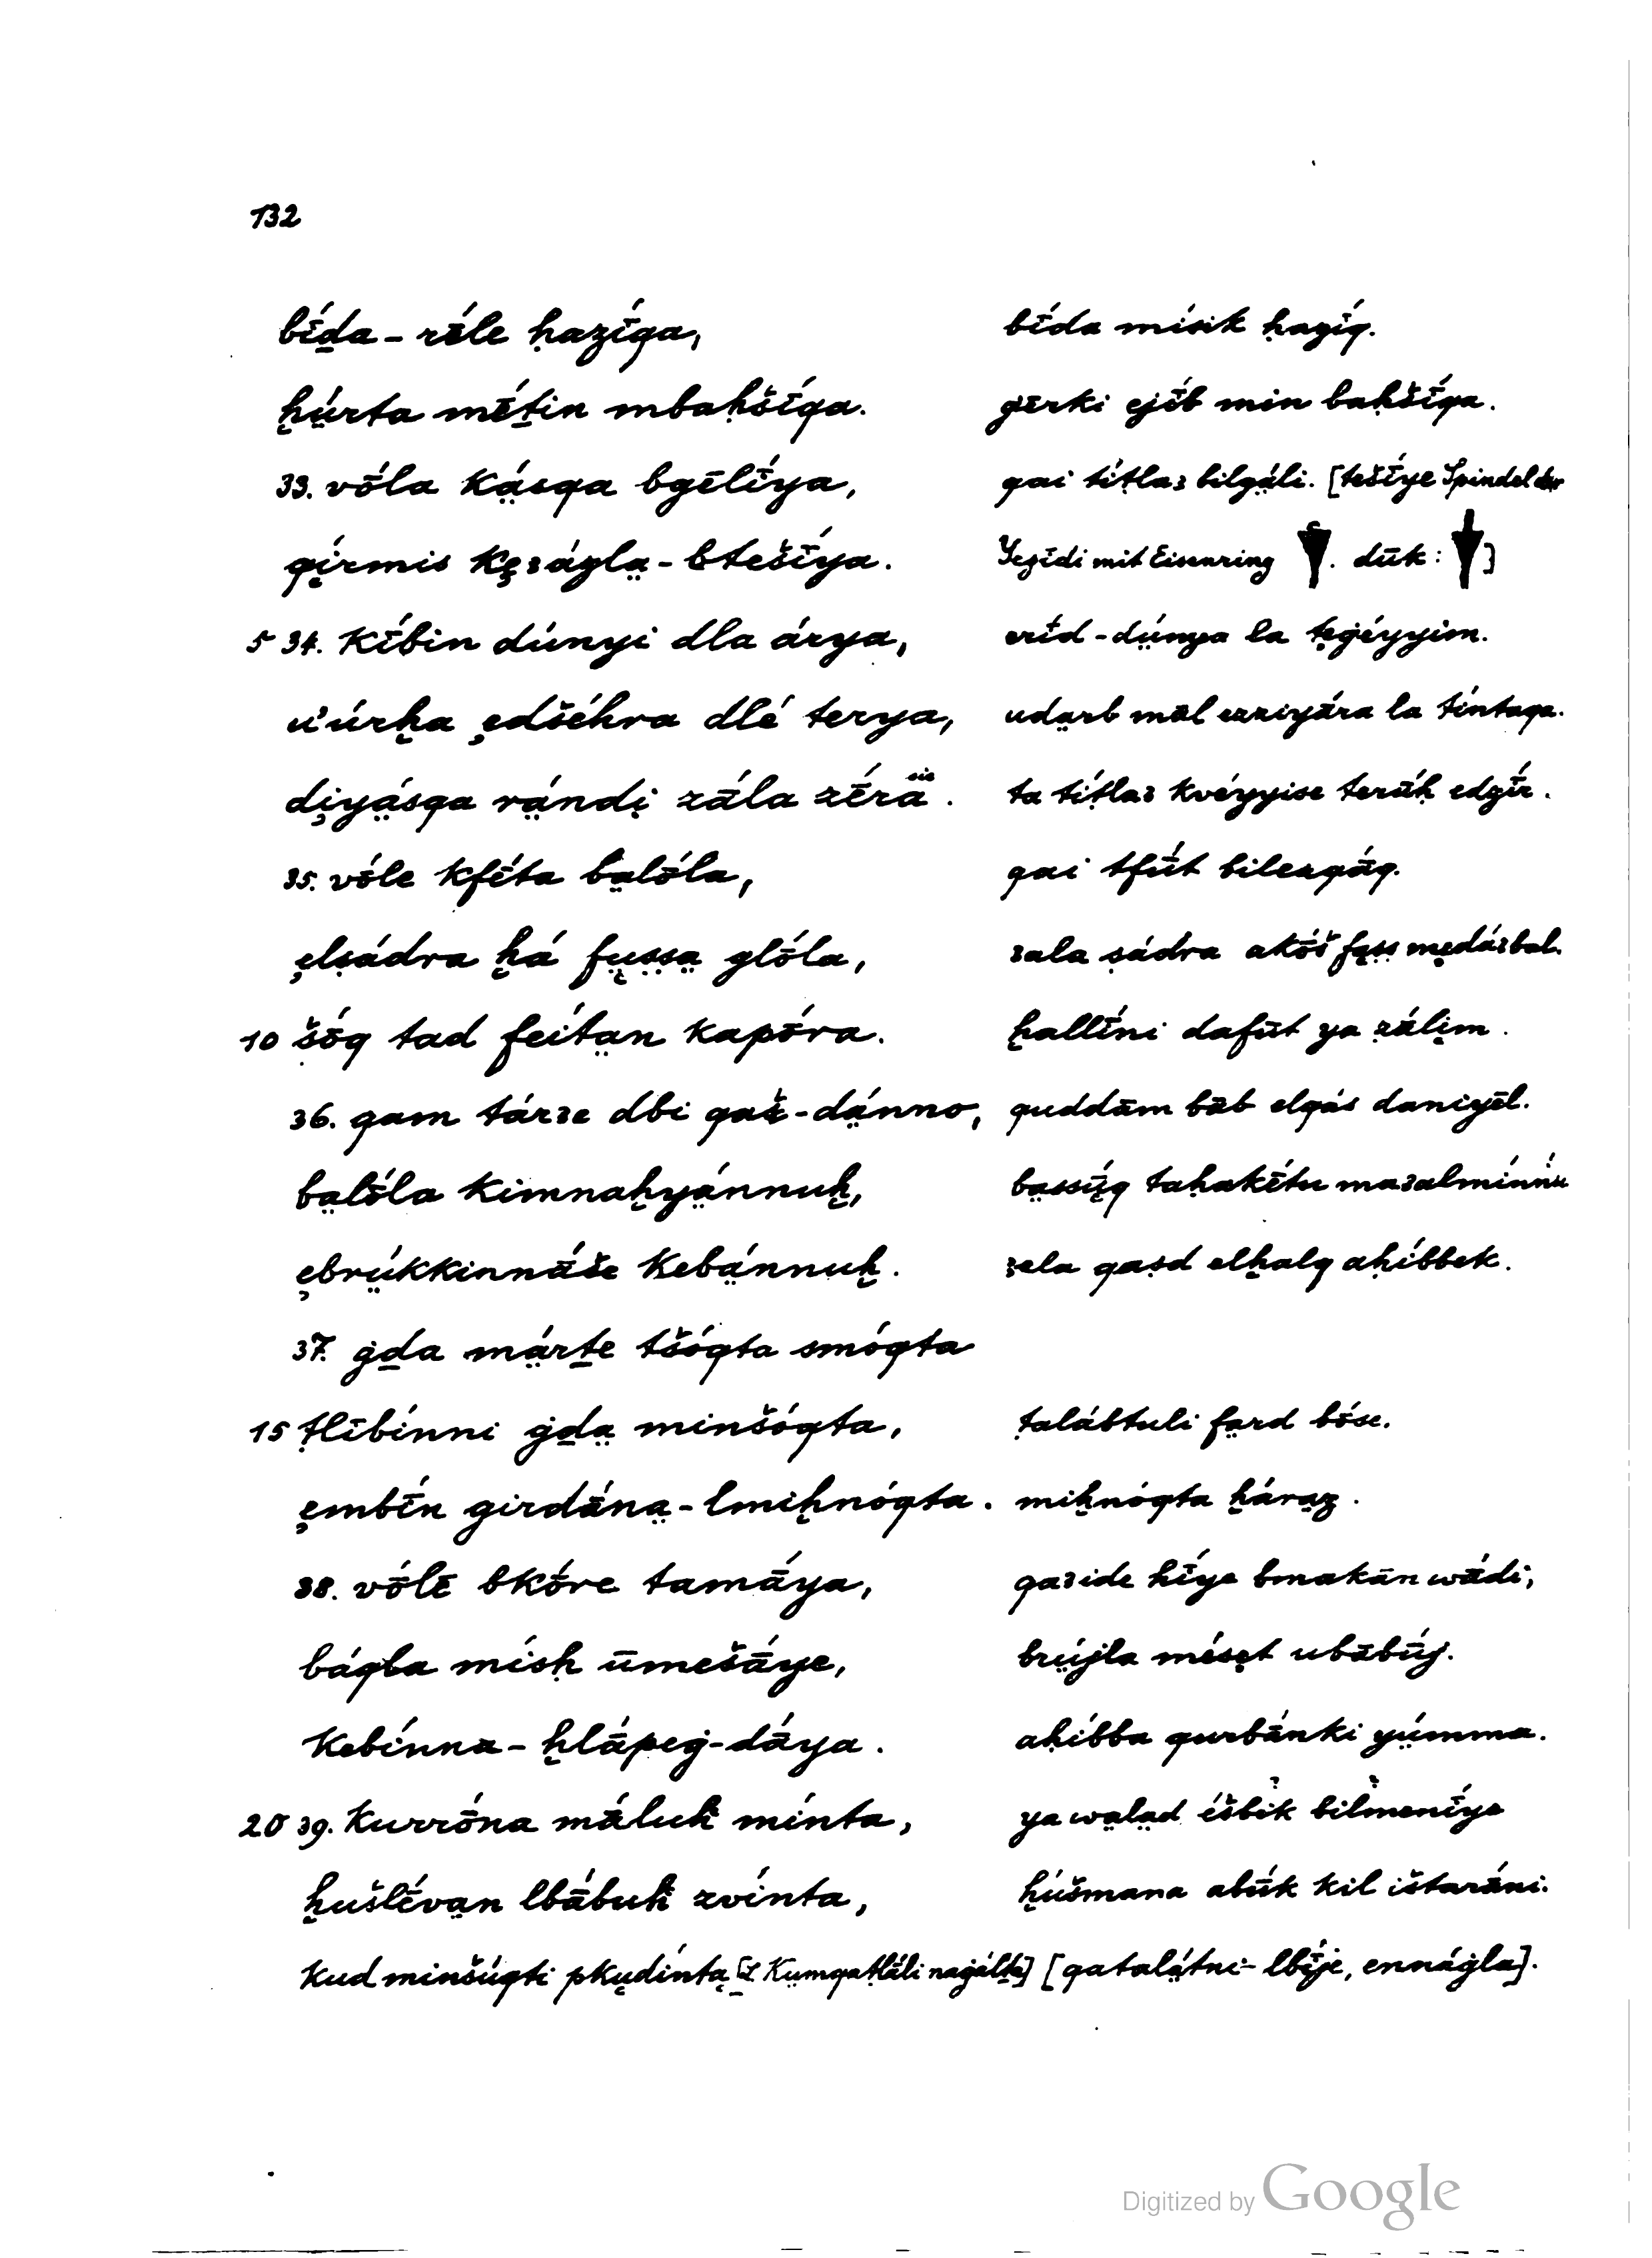 132
bī́ḏa - rḗle ḥazī́qa, bī́da mísik ḥazíq.
ḫṳ́rta mḗṯin mbaḥšī́qa. gērki ejī́b min baḥšī́qa.
33. vṓla kä́sqa bgēlī́ya, qai tíṭlaɜ bilgä́li. [tešī́ye Spindel der
qírmis kȩɜázla̤-btešī́ya. Yezīdi mit Eisenring . dūk: ]
5 34. kī́bin dúnyi dla árya, erī́d-dṳ́nya la tȩġéyyim.
u'úrḫa ȩdšéhra dlé terya, uda̤rb māl ezziyā́ra la tíntaqa.
di̧yä́sqa vä́ndi̧ zā́la zḗrä . ta tíṭlaɜ kvéyyise terū́ḥ edgī́r.
35. vṓle kfḗta ba̤lṓla, qai tfū́t bilezqā́q.
ȩlṣádra ḫá fṳṣṣa̤ glṓla, ɜala ṣádra akṓš fa̤ṣṣ mȩdáɜbal.
10 šṓq tad feíta̤n kapṓra. ḫallī́ni dafūt ya ẓā́lim.
36. qam tárɜe dbi qaš-dä́nno, quddām bāb elqás daniyēl.
ba̤lṓla kimnaḫyä́nnuḫ, ba̤ssṳ́q taḥakḗtu maɜalmínnu
ȩbrṳ́kkinnā́še kebä́nnuḫ. ɜela qaṣd elḫalq aḥíbbek.
37. ġḏa mä́rṯe tšóqta smóqta
15 ṭlībínni ġḏa̤ minšóqta, ṭalábtuli fa̤rd bṓse.
ȩmbī́n girdā́na̤-lmiḫnóqta. miḫnóqta ḫára̤z.
38. vṓlē bkṓre tamā́ya, qaɜide hī́ye bmakān wā́di,
báqla mísḥ ūmešā́ye, brṳ́jla mésȩt ubābū́j.
kebínna-ḫlā́peġ-dā́ya. aḥíbba qurbā́nki yṳ́mma.
20 39. kurrṓna mā́luḫ mínta, ya wa̤la̤d íšbik bilmenī́ye
ḫušlḗva̤n lbā́buḫ zvínta, ḫúšmana abū́k kil ištarā́ni.
kud minšúqti pkṳdínta [kṳmqaṭlā́li naġálṯa] [qatalä́tni-lbī́je, ennáġla].
Digitized by Google